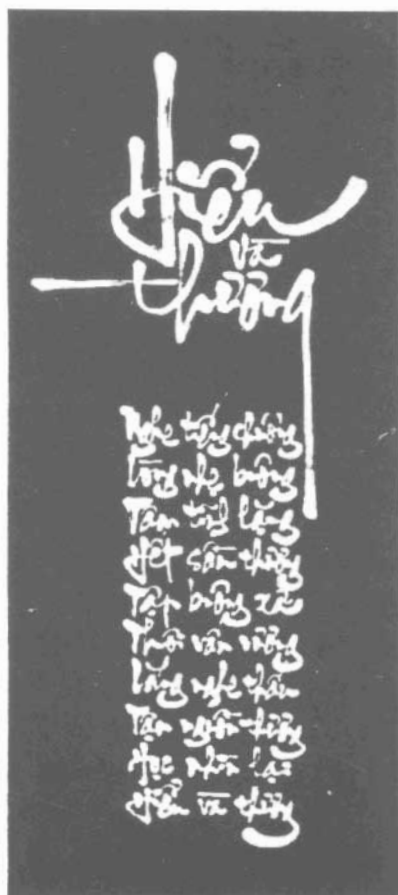 Hiểu
và
thương
Nghe tiếng chuông
Lòng nhẹ buông
Tâm tĩnh lặng
Hết sầu thương
Tập buông xả
Thôi vấn vương
Lắng nghe thấu
Tận nguồn thương
Học nhìn lại
Hiểu và thương